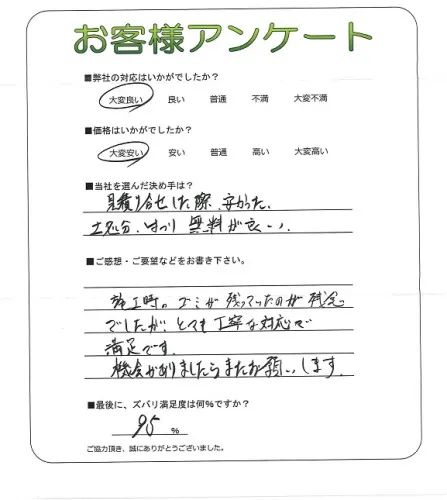 お客様アンケート
■弊社の対応はいかがでしたか？
大変良い 良い 普通 不満 大変不満
■価格はいかがでしたか？
大変安い 安い 普通 高い 大変高い
■当社を選んだ決め手は？
見積り合せした際、安かった。
土処分、はつり無料が良い。
■ご感想・ご要望などをお書き下さい。
施工時のゴミが残っていたのが残念
でしたが、とても丁寧な対応で
満足です。
機会がありましたらまたお願いします。
■最後に、ズバリ満足度は何%ですか？
95 %
ご協力頂き、誠にありがとうございました。